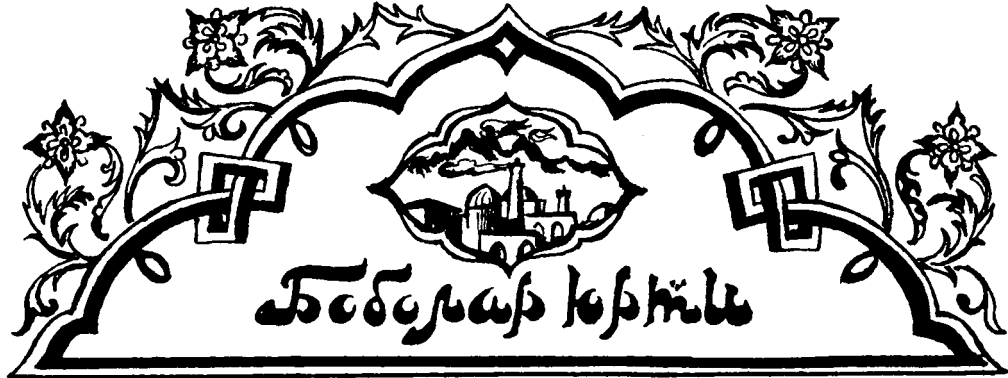 Боболар юрти